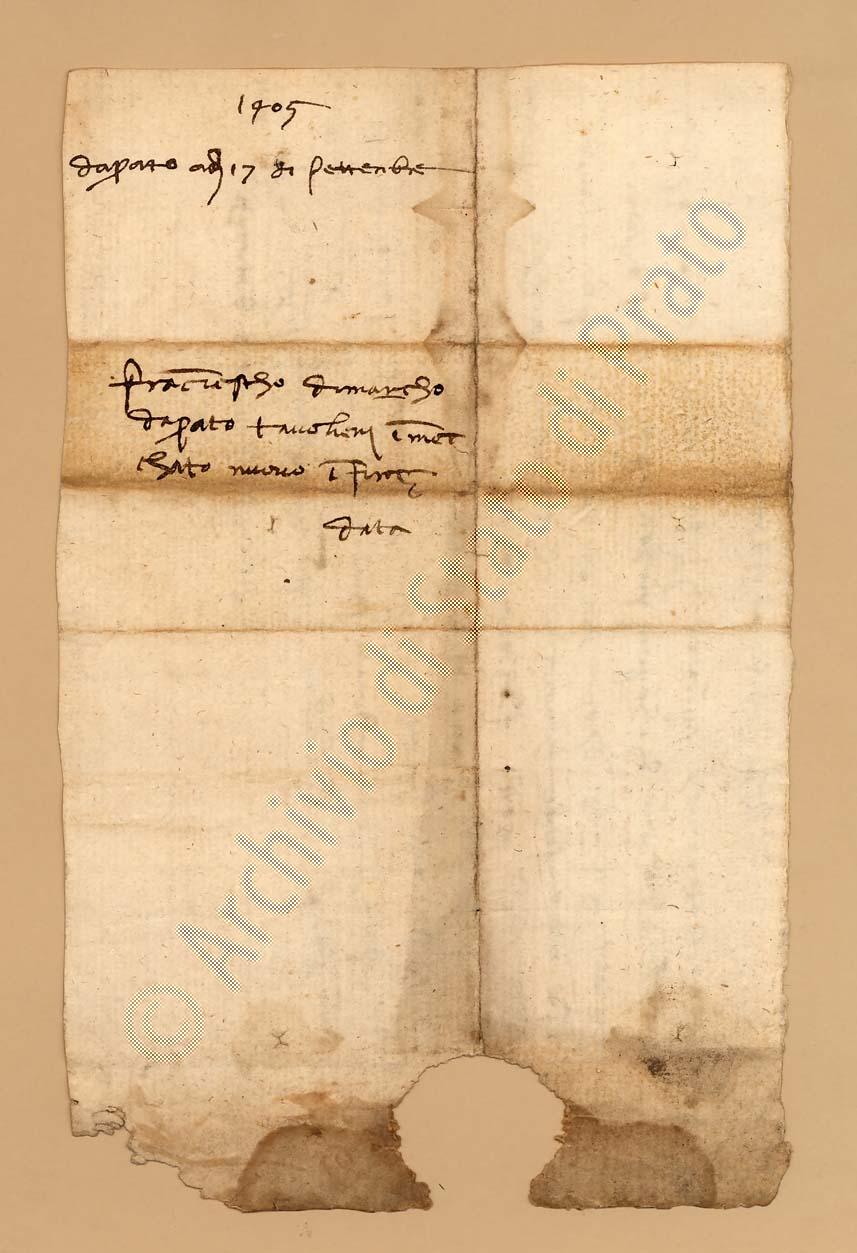 1405
da prato adi 17 di settenbre
franciescho di marcho
da prato
chato nuovo in firenze
data
© Archivio di Stato di Prato